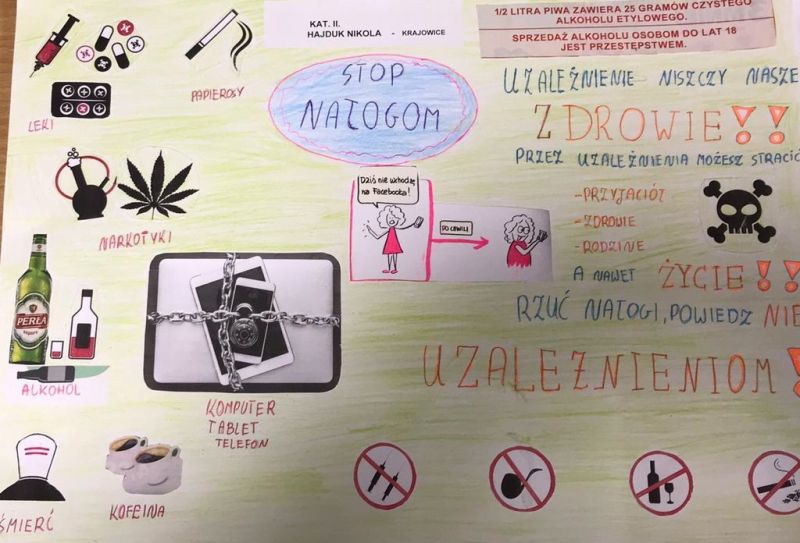 KAT. II.
HAJDUK NIKOLA - KRAJOWICE
1/2 LITRA PIWA ZAWIERA 25 GRAMÓW CZYSTEGO
ALKOHOLU ETYLOWEGO.
SPRZEDAŻ ALKOHOLU OSOBOM DO LAT 18
JEST PRZESTĘPSTWEM.
PAPIEROSY
LEKI
STOP
NAŁOGOM
UZALEŻNIENIE NISZCZY NASZE
ZDROWIE!!
PRZEZ UZALEŻNIENIA MOŻESZ STRACIĆ
-PRZYJACIÓŁ
-ZDROWIE
-RODZINE
A NAWET ŻYCIE!!
RZUĆ NAŁOGI, POWIEDZ NIE
UZALEŻNIENIOM!
Dziś nie wchodzę
na Facebooka!
PO CHWILI
NARKOTYKI
PERŁA
ALKOHOL
KOMPUTER
TABLET
TELEFON
ŚMIERĆ
KOFEINA